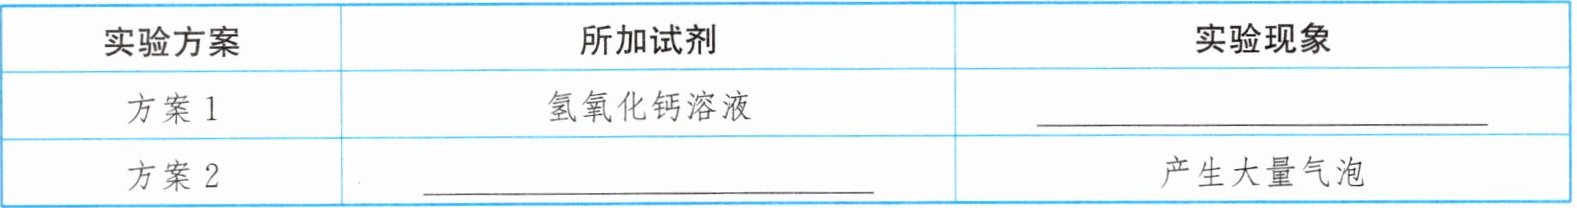 实验方案 所加试剂 实验现象
方案1 氢氧化钙溶液
方案2 产生大量气泡